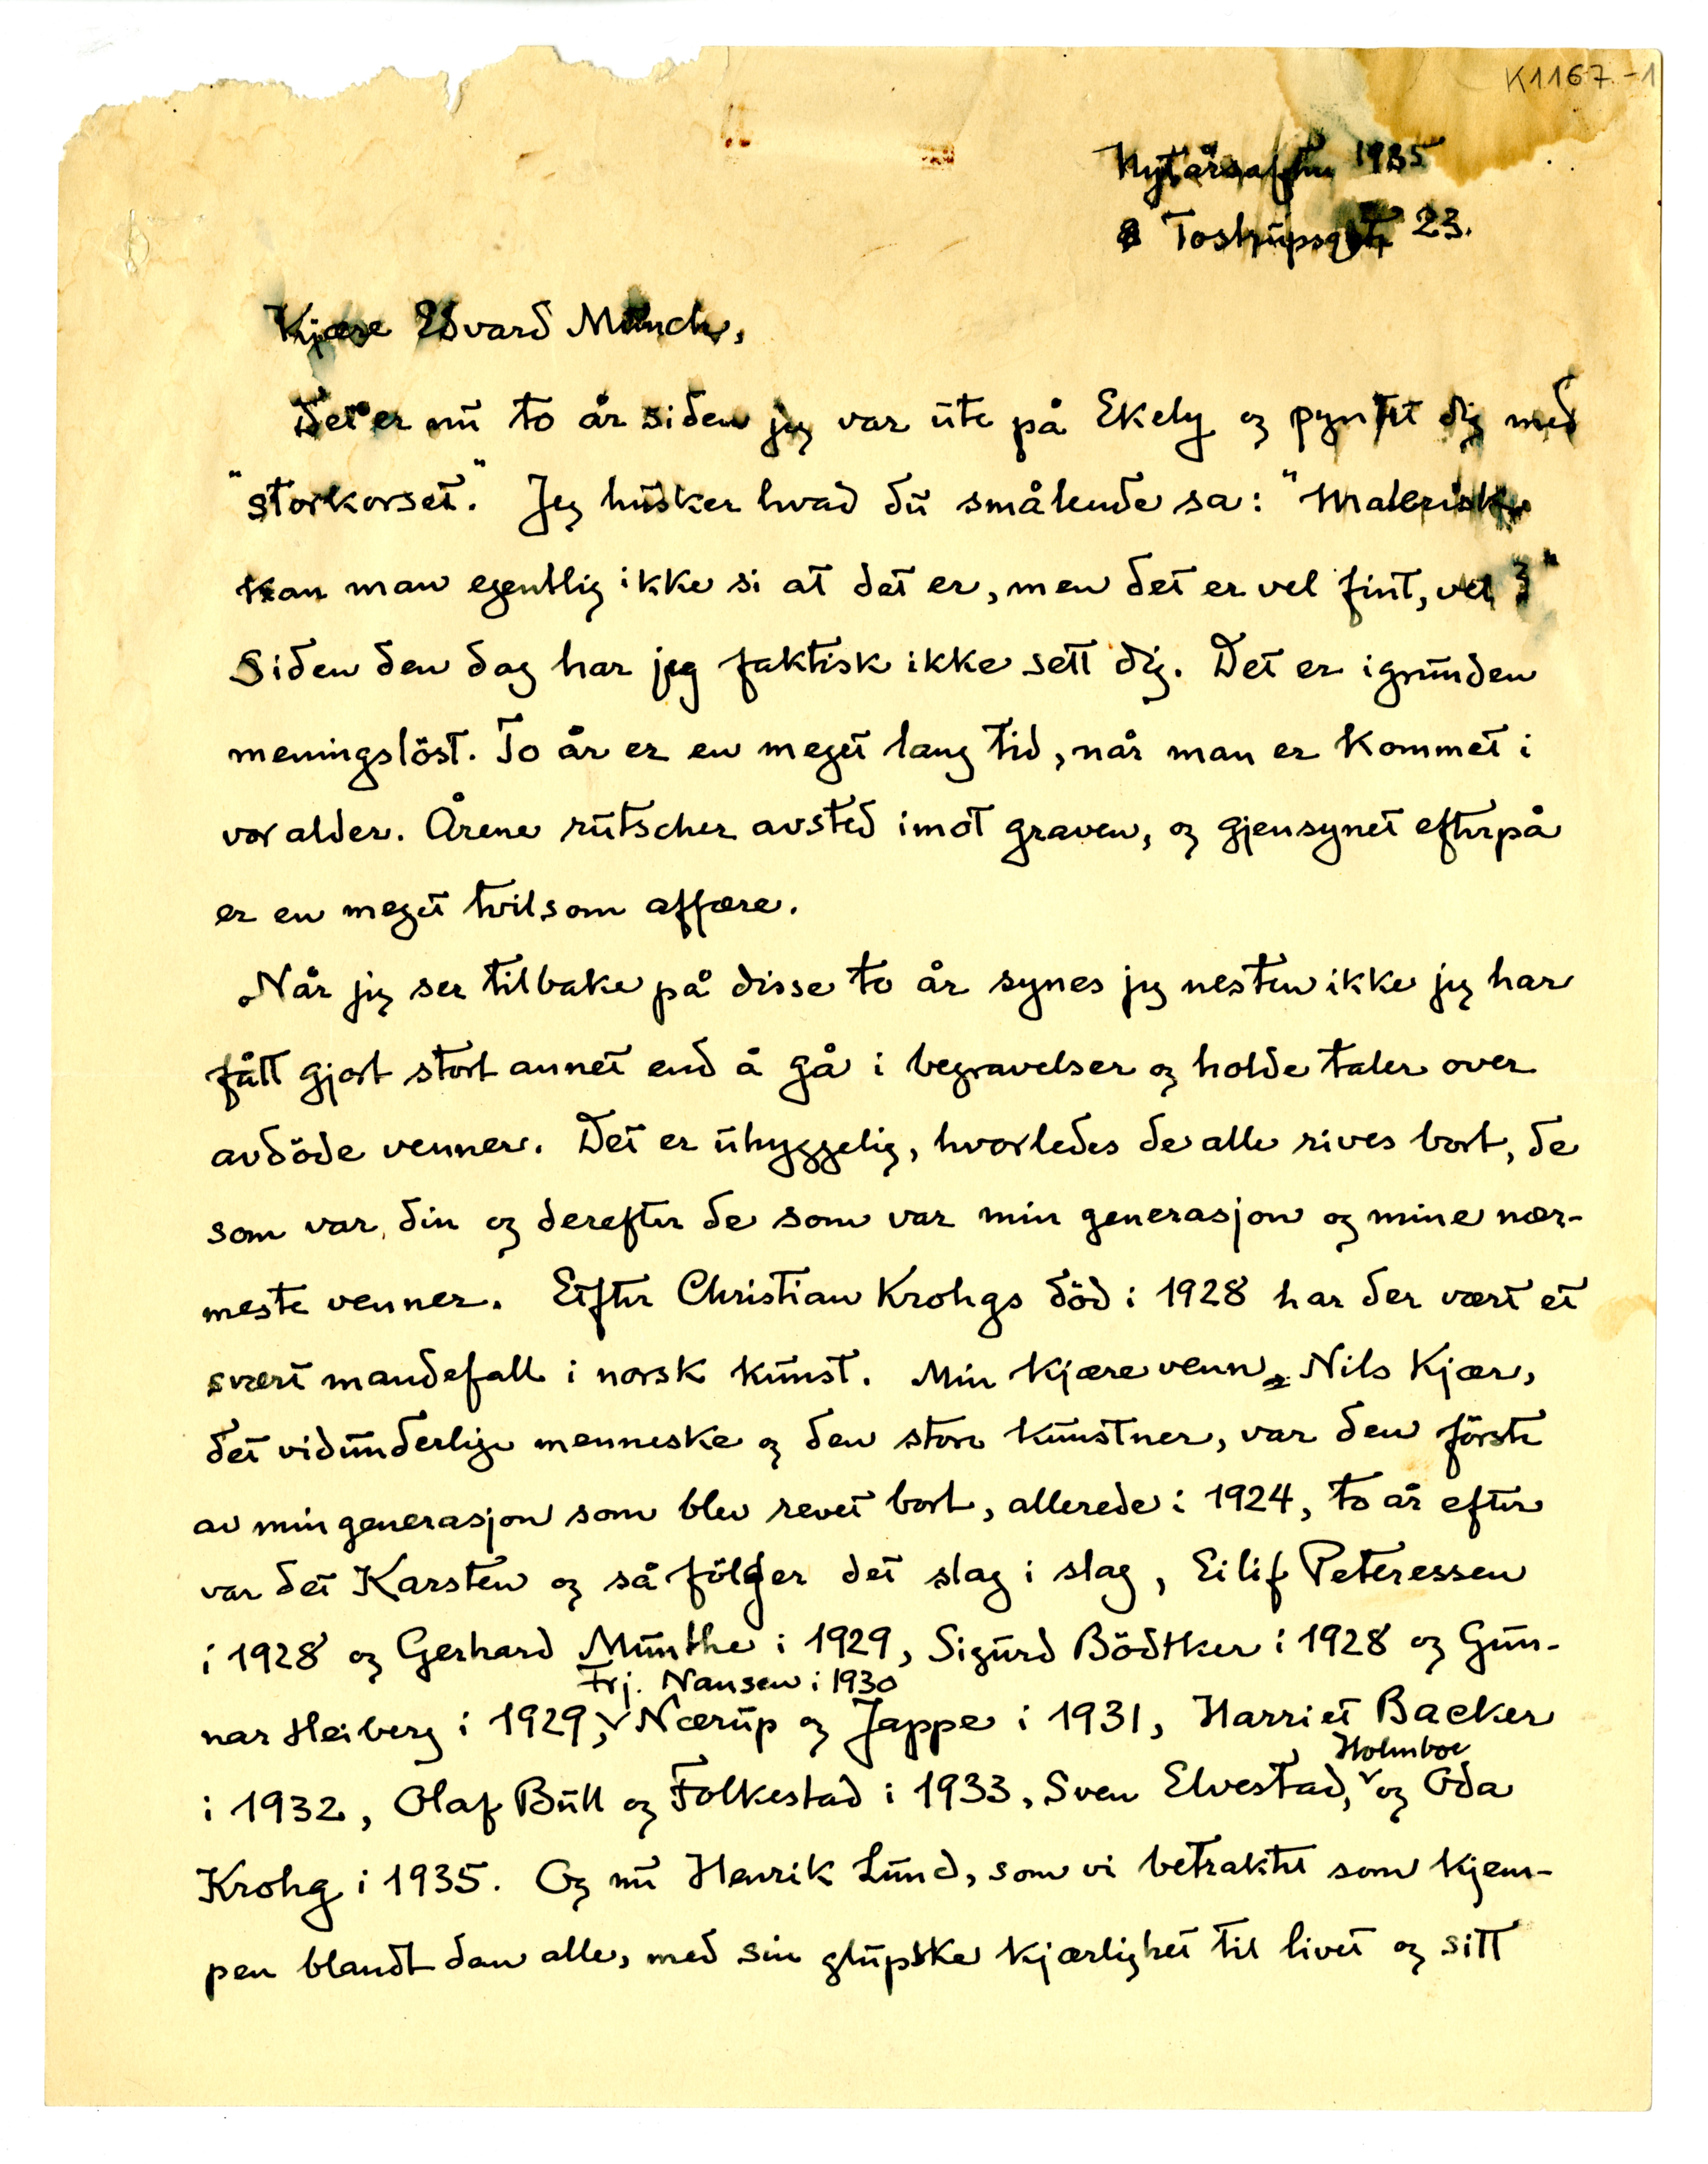 K1167.-1
Nytårsaften 1935
Tostrupsgt 23.
Kjære Edvard Munch,
Det er nu to år siden jeg var ute på Ekely og pyntet dig med
"storkorset." Jeg husker hvad du småleende sa: "Malerisk
kan man egentlig ikke si at det er, men det er vel fint, vel?"
Siden den dag har jeg faktisk ikke sett dig. Det er igrunden
meningsløst. To år er en meget lang tid, når man er kommet i
vor alder. Årene rutscher avsted imot graven, og gjensynet efterpå
er en meget tvilsom affære.
Når jeg ser tilbake på disse to år synes jeg nesten ikke jeg har
fått gjort stort annet end å gå i begravelser og holde taler over
avdöde venner. Det er uhyggelig, hvorledes de alle rives bort, de
som var din og derefter de som var min generasjon og mine nær-
meste venner. Efter Christian Krohgs död i 1928 har der vært et
svært mandefall i norsk kunst. Min kjære venn, Nils Kjær,
det vidunderlige menneske og den store kunstner, var den förste
av min generasjon som blev revet bort, allerede i 1924, to år efter
var det Karsten og så fölger det slag i slag, Eilif Peteressen
i 1928 og Gerhard Munthe i 1929, Sigurd Bödtker i 1928 og Gun-
Frj. Nansen i 1930
nar Heiberg i 1929, Nærup og Jappe i 1931, Harriet Backer
Holmboe
i 1932, Olaf Bull og Folkestad i 1933, Sven Elvestad, og Oda
Krohg i 1935. Og nu Henrik Lund, som vi betraktet som kjem-
pen blandt dem alle, med sin glupske kjærlighet til livet og sitt